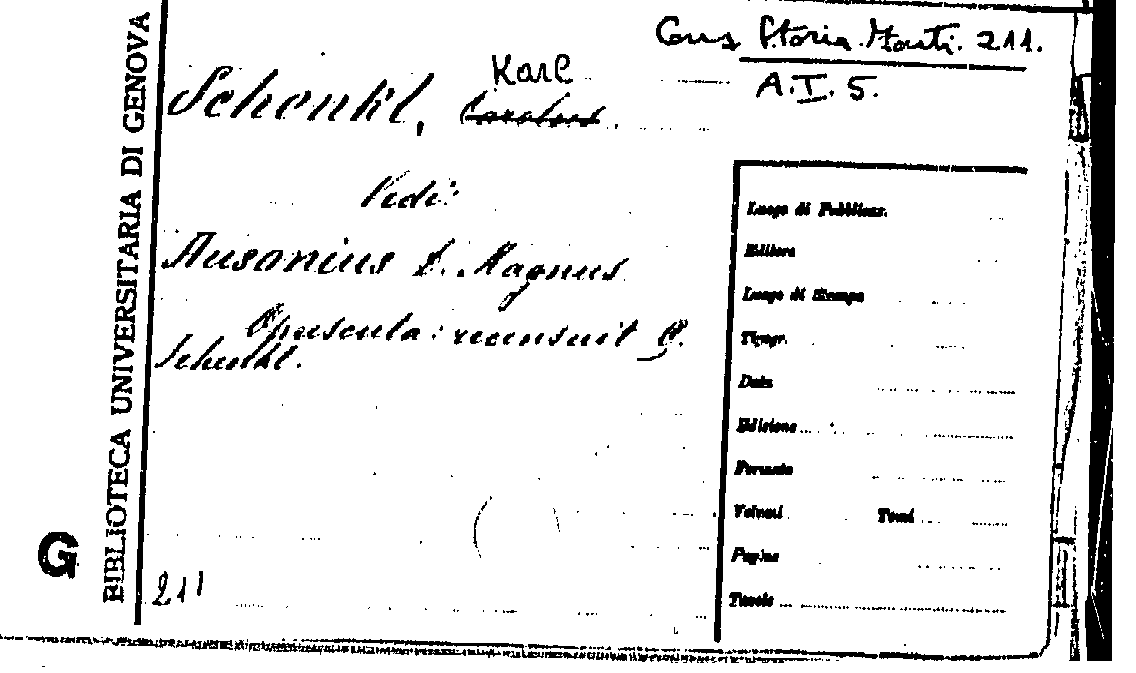 Cons Storia Monti. 211.
A.I.5.
Karl
Schenkl, Carolus.
Vedi:
Ausonius D. Magnus
Opuscula: recensuit C.
Schenkl.
211
G
BIBLIOTECA UNIVERSITARIA DI GENOVA
Luogo di Pubblicaz.
Editore
Luogo di Stampa
Tipogr.
Data
Edizione
Formato
Volumi Tomi
Pagine
Tavole